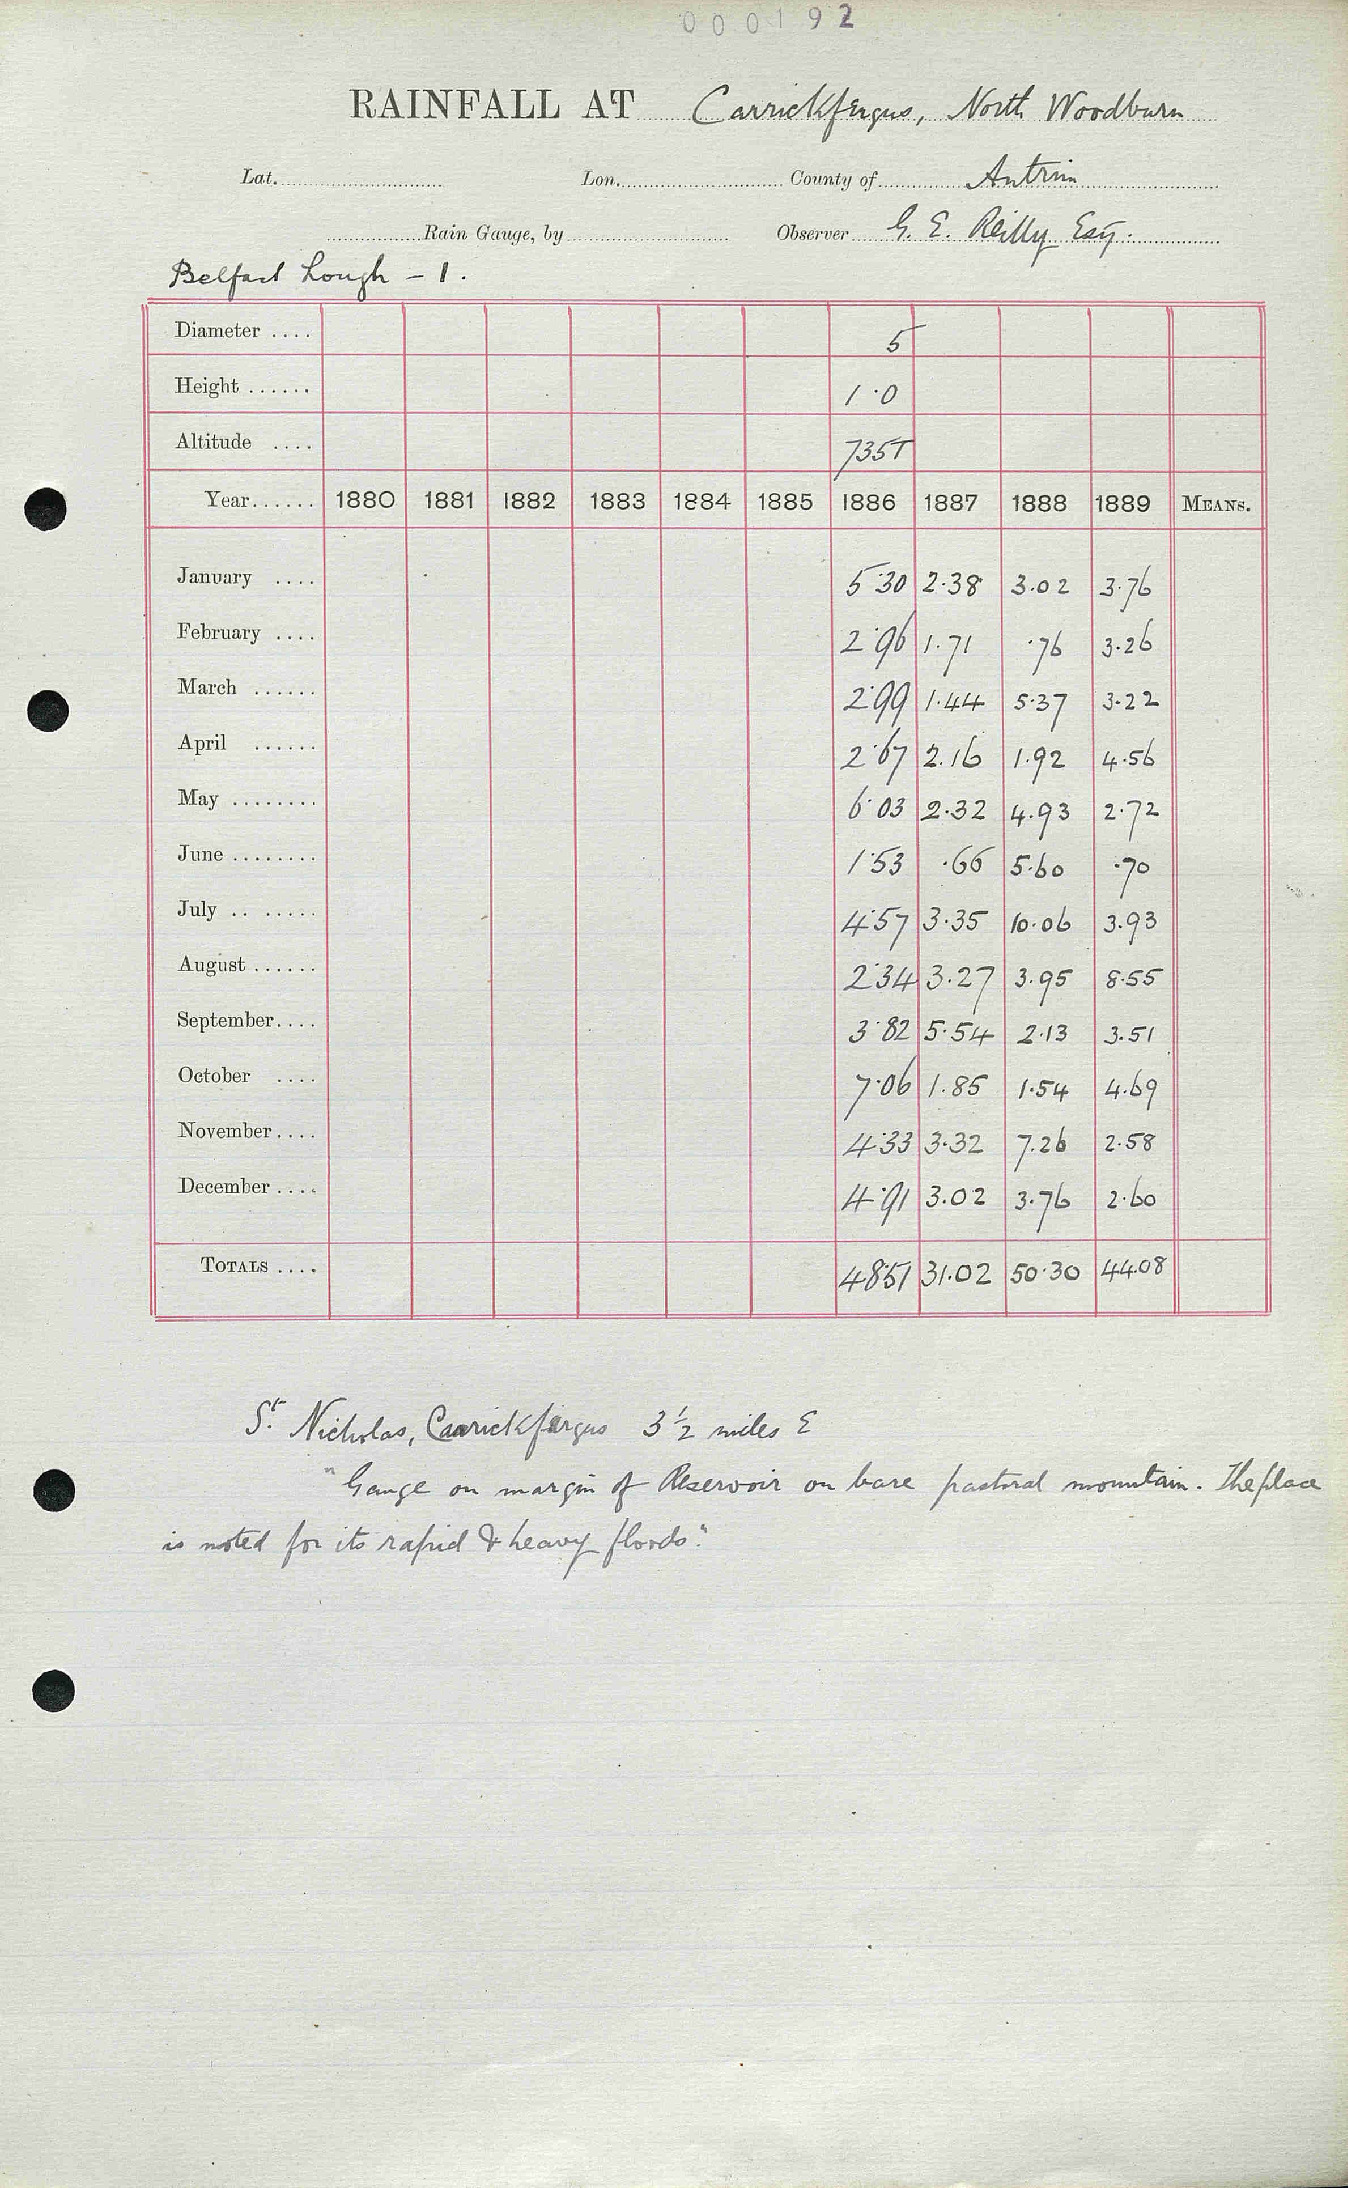 000192
RAINFALL AT Carrickfergus, North Woodburn
Lat. Lon. County of Antrim
Rain Gauge, by Observer G. E. Reilly Esq.
Belfast Lough - 1.
Diameter .... 5
Height ...... 1.0
Altitude .... 735T
Year...... 1880 1881 1882 1883 1884 1885 1886 1887 1888 1889 MEANS.
January .... 5.30 2.38 3.02 3.76
February .... 2.96 1.71 .76 3.26
March ...... 2.99 1.44 5.37 3.22
April ...... 2.67 2.16 1.92 4.56
May ........ 6.03 2.32 4.93 2.72
June ........ 1.53 .66 5.60 .70
July .. ..... 4.57 3.35 10.06 3.93
August ...... 2.34 3.27 3.95 8.55
September.... 3.82 5.54 2.13 3.51
October .... 7.06 1.85 1.54 4.69
November.... 4.33 3.32 7.26 2.58
December .... 4.91 3.02 3.76 2.60
TOTALS .... 48.51 31.02 50.30 44.08
St. Nicholas, Carrickfergus 3 1/2 miles E
"Gauge on margin of Reservoir on bare pastoral mountain. The place
is noted for its rapid & heavy floods."